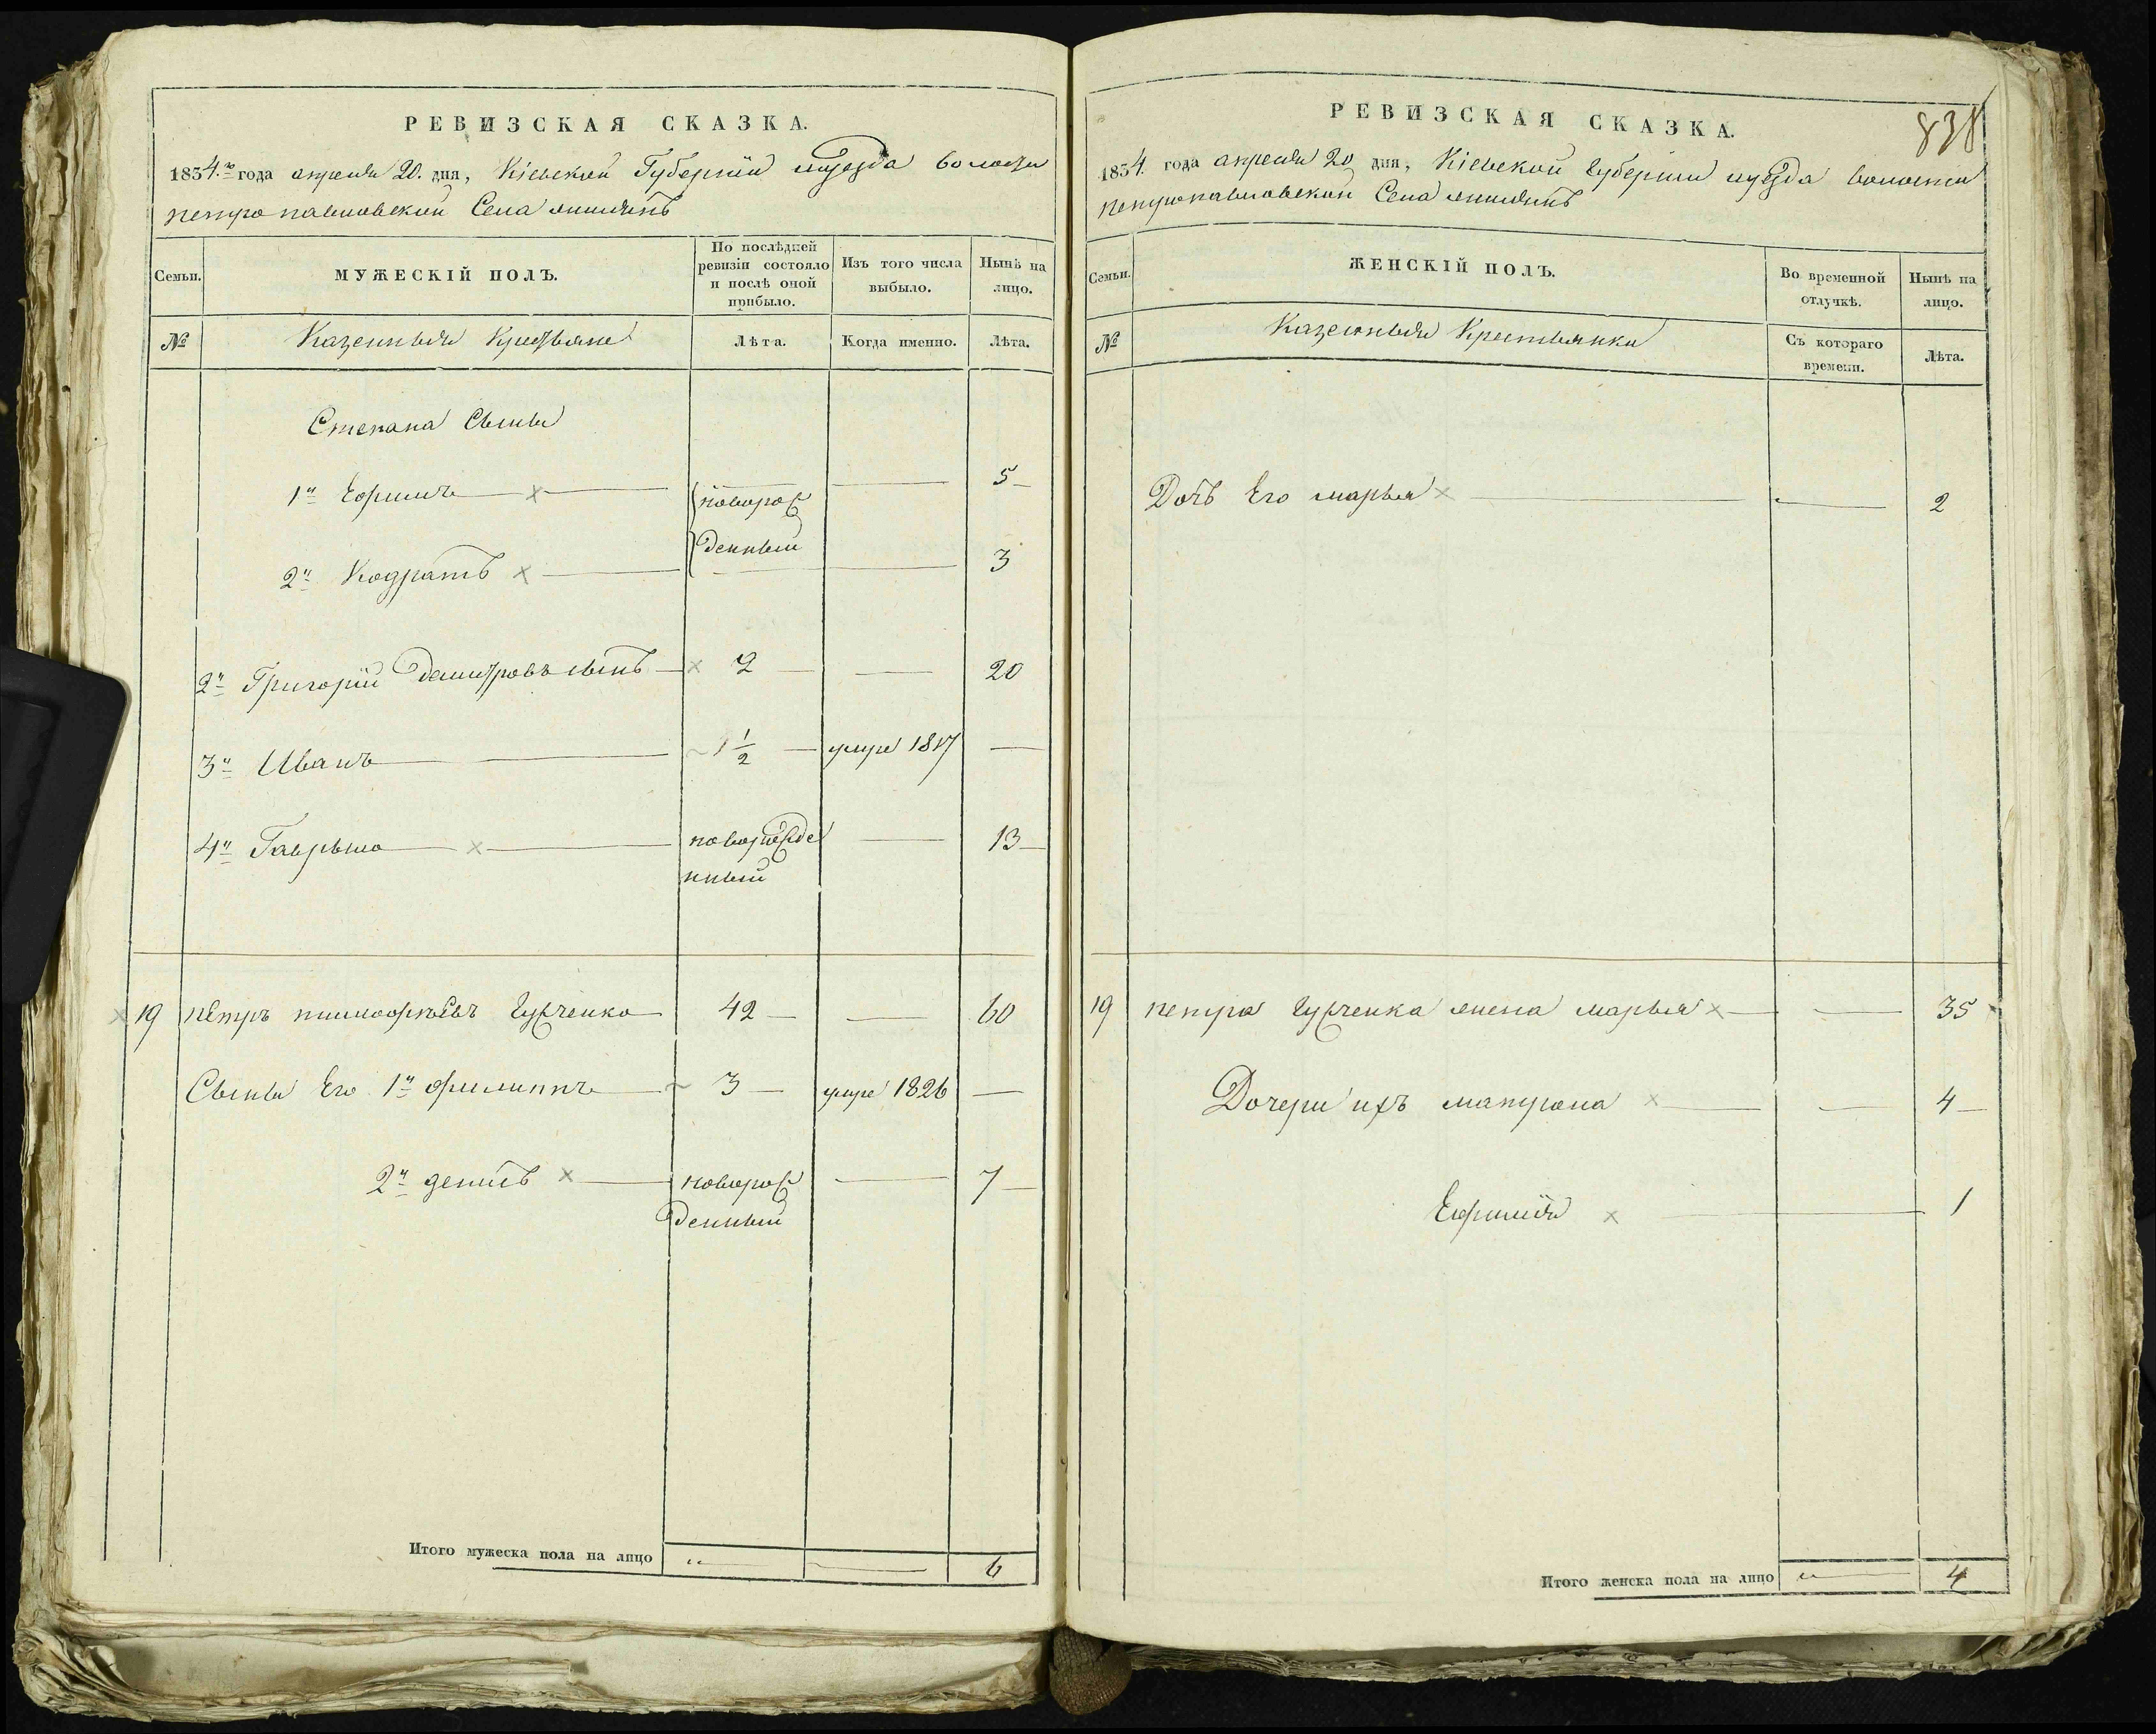 РЕВИЗСКАЯ СКАЗКА.
1834.го года апреля 20. дня, Кіевской Губерніи иуезда волости
петропавловской Села
Семьи.
МУЖЕСКІЙ ПОЛЪ.
По послѣдней ревизіи состояло и послѣ оной прибыло.
Изъ того числа выбыло.
Нынѣ на лицо.
№
Казенныя Крестьяне
Лѣта.
Когда именно.
Лѣта.
Степана Сыны
1й Ефимъ новорож 5
денный
2й Кодратъ 3
2й Григорій Демитровъ сынъ 2 20
3й Иванъ 1 1/2 умре 1817
4й Гаврыло новорожде 13
нный
19 петръ тимофѣевъ Гужченко 42 60
Сыны Его 1й филиппъ 3 умре 1826
2й денисъ новорож 7
денный
Итого мужеска пола на лицо " 6
838
РЕВИЗСКАЯ СКАЗКА.
1834. года апреля 20 дня, Кіевской Губерніи иуезда волости
петропавловской Села
Семьи.
ЖЕНСКІЙ ПОЛЪ.
Во временной отлучкѣ.
Нынѣ на лицо.
№
Казенныя Крестьянки
Съ котораго времени.
Лѣта.
Дочъ Его марья 2
19 петра Гужченка жена марья 35
Дочери ихъ матрона 4
Ефимія 1
Итого женска пола на лицо " 4